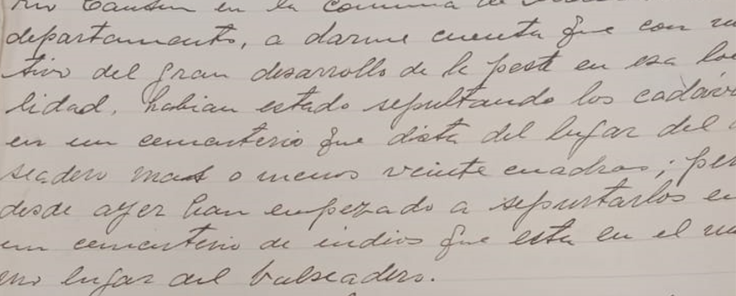 río Cautín en la comuna de
departamento, a darme cuenta que con mo
tivo del gran desarrollo de la peste en esa loca
lidad, habían estado sepultando los cadáve
en un cementerio que dista del lugar del
seadero mas o menos veinte cuadras; per
desde ayer han empezado a sepultarlos en
un cementerio de indios que esta en el mis
mo lugar del balseadero.